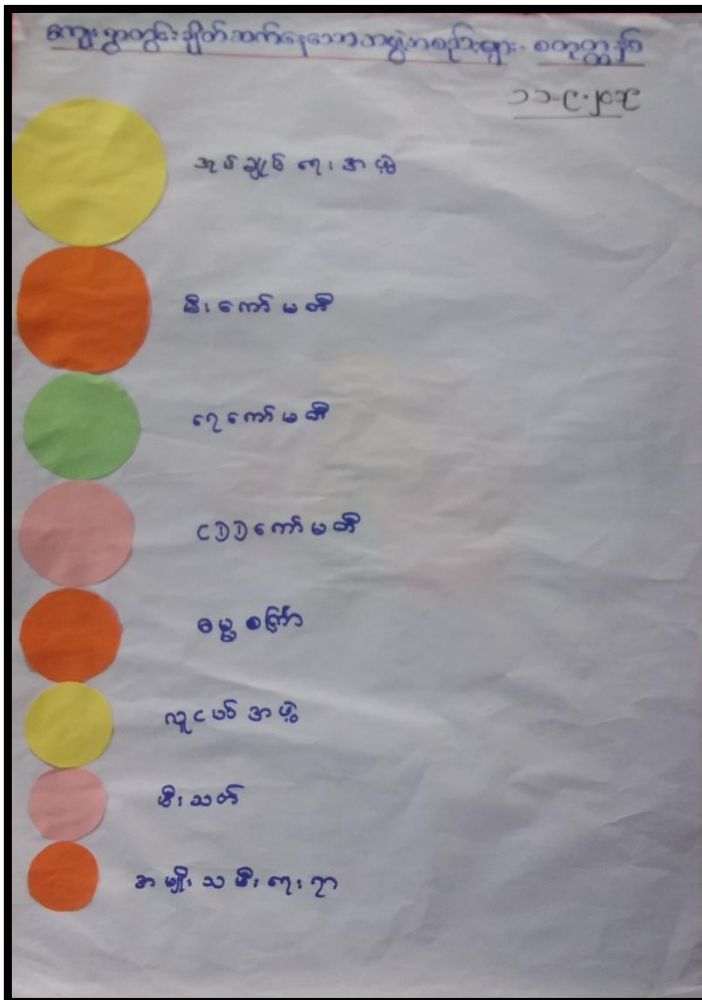 ကျေးရွာတွင်းချိတ်ဆက်နေသောအဖွဲ့အစည်းများ
၁၁-၉-၂၀၁၄
အုပ်ချုပ်ရေးအဖွဲ့
မီးကော်မတီ
ရေကော်မတီ
CDDကော်မတီ
ဓမ္မစကြာ
လူငယ်အဖွဲ့
မီးသတ်
အမျိုးသမီးရေးရာ